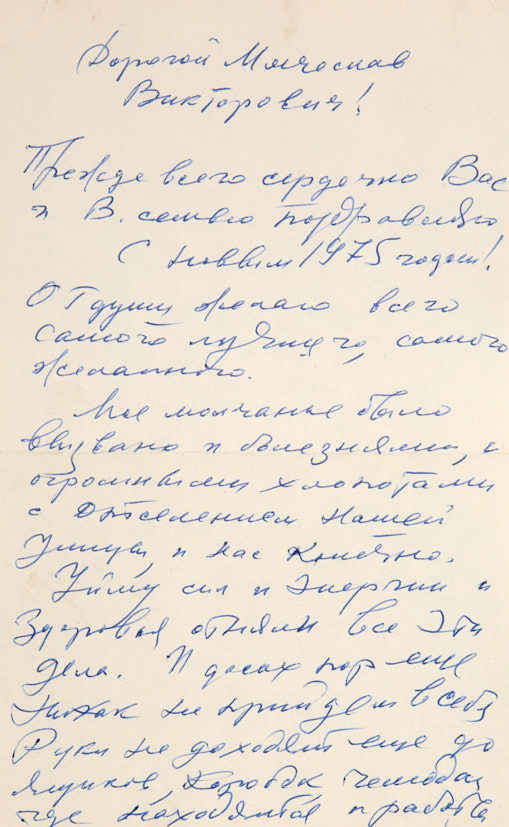 Дорогой Мячеслав
Викторович!
Прежде всего сердечно Вас
и В. семью поздравляю
С новым 1975 годом!
От души желаю всего
самого лучшего, самого
желанного.
Мое молчанье было
вызвано и болезнями, и
огромными хлопотами
с отселением нашей
улицы и нас конечно.
Уйму сил и энергии и
Здоровья отняли все эти
дела. И до сих пор еще
никак не прийдем в себя
Руки не доходят еще до
ящиков, коробок чемодан
где находятся и работы